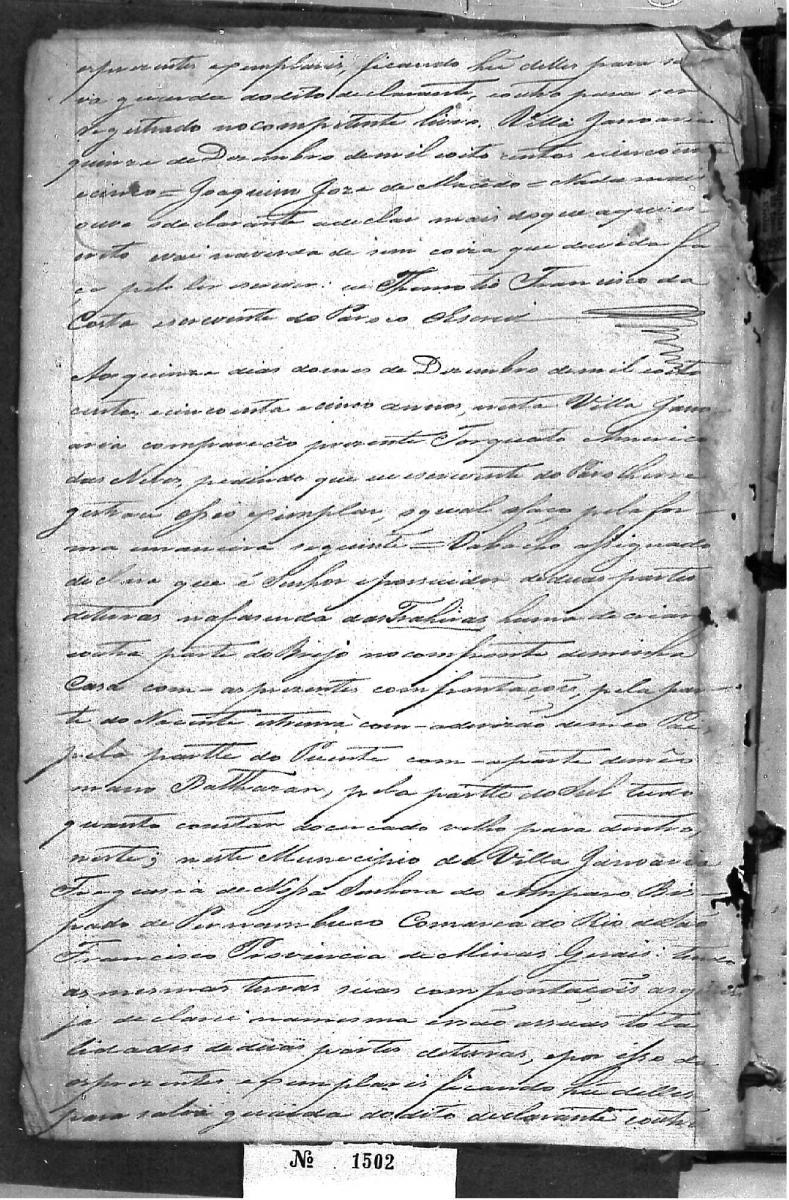 os prezentes exemplares, ficando hũ delles para sal
va guarda do dito declarante, e outro para ser
registrado no competente livro. Villa Januaria
quinze de Dezembro de mil oito centos e cincoenta
e cinco = Joaquim Joze de Macêdo = Nada mais
o declarante a declarar mais do que aqui es-
crito e vai na verdade sem coiza que duvida fa
ça pelo ler escrever: eu Themotio Francisco da
Costa escrevente do Paroco escrevi
Aos quinze dias do mes de Dezembro de mil oito
centos, e cincoenta e cinco annos, nesta Villa Janu-
aria compareceo prezente Torquato Americo
das Neves, pedindo que eu escrevente do Parocho re
gistrace esse exemplar, o qual o faço pela for-
ma e maneira seguinte = O abaicho assignado
declara que é Senhor e possuidor de duas partes
de terras na fasenda das Trahiras huma de criar
e outra parte do Brejo no comfronte de minha
Casa com as prezentes comfrontações, pela par-
te do Nacente estrema com a devizão de meo Pai,
pela partte do Puente com a parte de meo
mano Balthazar, pela partte do Sul tudo
quanto constar do cercado velho para dentro,
norte; neste Municipio da Villa Januaria
Freguesia de Nossa Senhora do Amparo Bis-
pado de Pernambuco Comarca do Rio de São
Francisco Provincia de Minas Gerais: tendo
as mesmas terras suas comfrontações as quais
ja declarei na mesma e não as suas tota
lidades de duas partes de terras, e por isso dei
os prezentes exemplares ficando hũ delles
para salva guarda do dito declarante e outro
Nº 1502